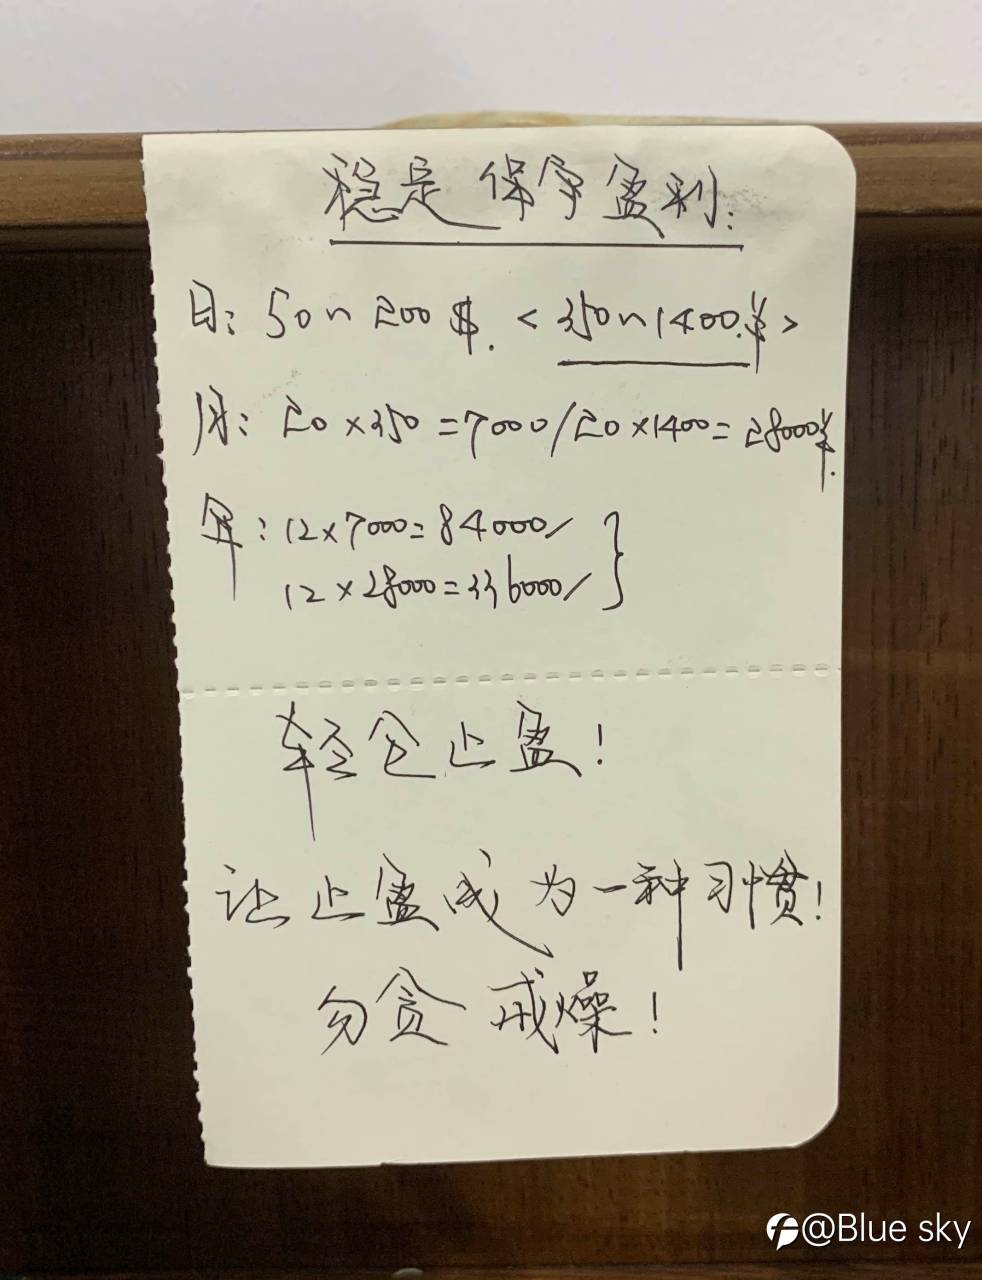 稳定 保守盈利:
日: 50~200$. <350~1400.¥>
月: 20×350=7000/20×1400=28000¥.
年: 12×7000=84000/
12×28000=336000/ }
轻仓止盈!
让止盈成为一种习惯!
勿贪 戒燥!
@Blue sky